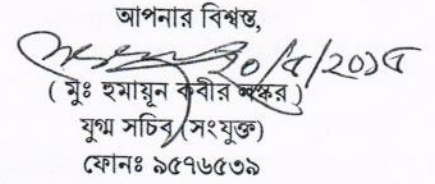 আপনার বিশ্বস্ত,
২০/৫/২০১৫
( মুঃ হুমায়ূন কবীর )
যুগ্ম সচিব (সংযুক্ত)
ফোনঃ ৯৫৭৬৫৩৯